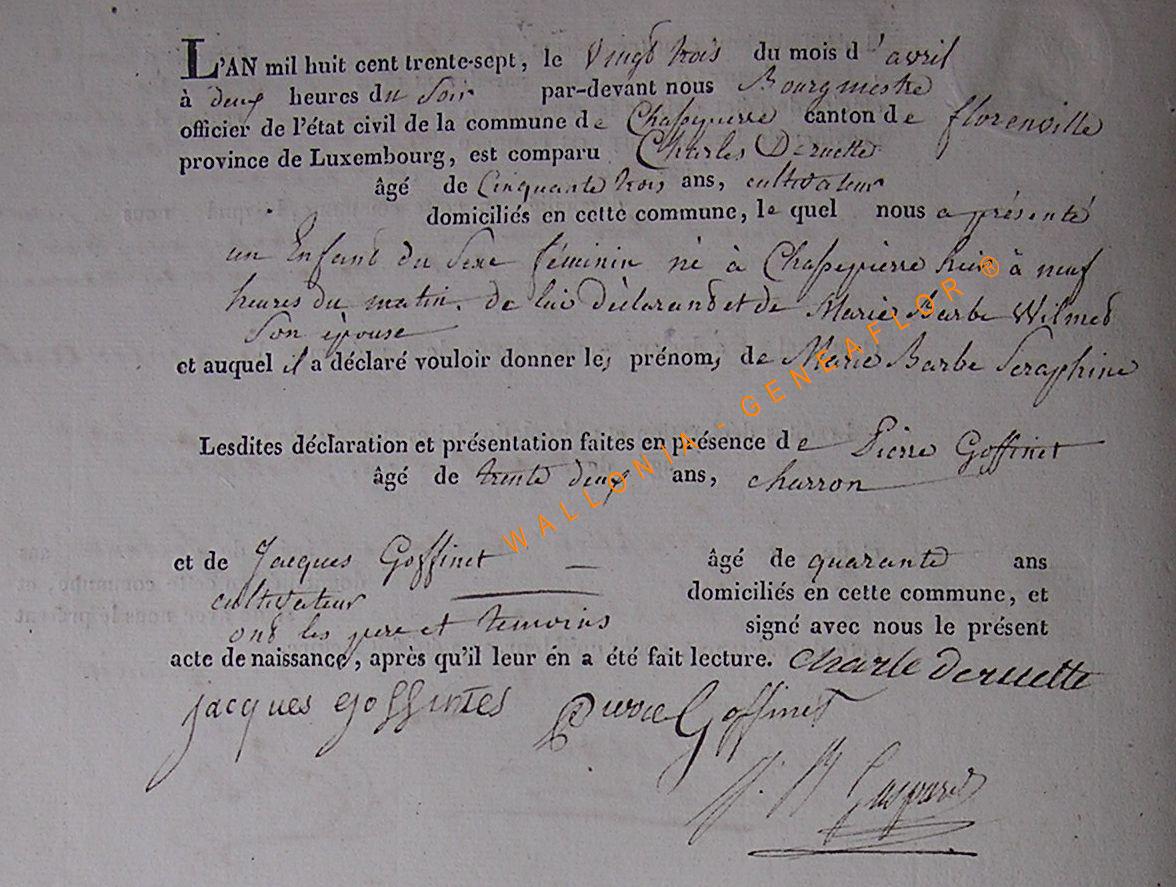 L'AN mil huit cent trente-sept, le vingt trois du mois d'avril
à deux heures du Soir par-devant nous Bourgmestre
officier de l'état civil de la commune de Chassepierre canton de florenville
province de Luxembourg, est comparu Charles Deruette
âgé de Cinquante trois ans, cultivateur
domiciliés en cette commune, le quel nous a présenté
un Enfant du Sexe féminin né à Chassepierre hier à neuf
heures du matin. de lui déclarant et de Marie Barbe Wilmes
Son épouse
et auquel il a déclaré vouloir donner les prénoms de Marie Barbe Seraphine
Lesdites déclaration et présentation faites en présence de Pierre Goffinet
âgé de trente deux ans, charron
et de Jacques Goffinet âgé de quarante ans
cultivateur domiciliés en cette commune, et
ont les pere et temoins signé avec nous le présent
acte de naissance, après qu'il leur en a été fait lecture. charle deruette
jacques goffintes Pierre Goffinet
J. B Gasparet
WALLONIA - GENEAFLOR ®